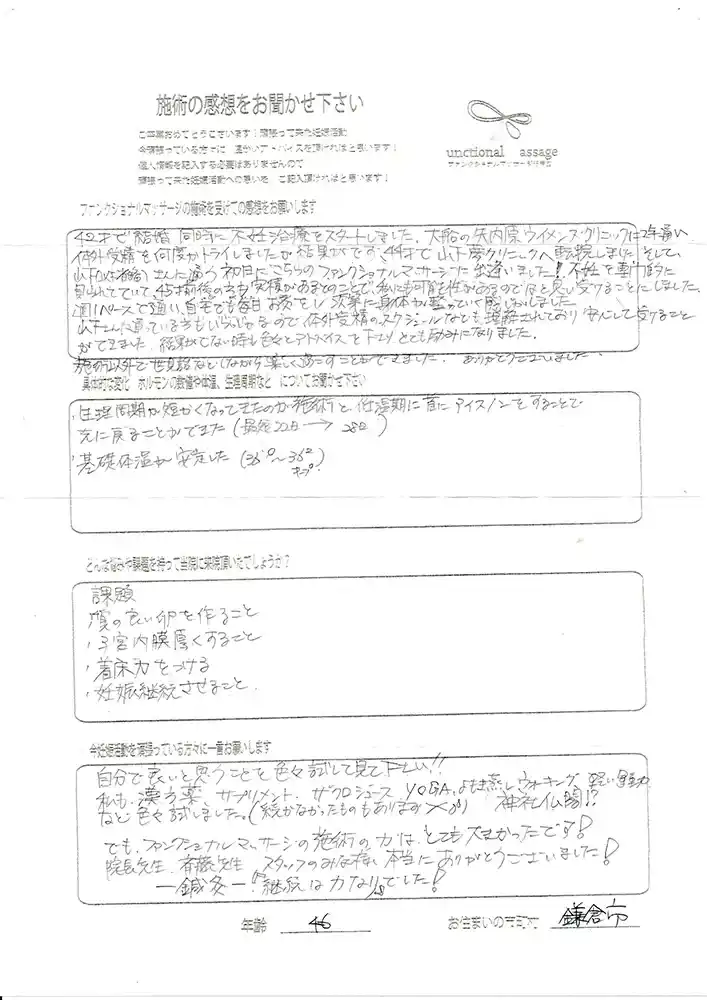 施術の感想をお聞かせ下さい
ご卒業おめでとうございます！頑張って来た妊娠活動
今頑張っている方々に 温かいアドバイスを頂ければと思います！
個人情報を記入する必要はありませんので
頑張って来た妊娠活動への思いを ご記入頂ければと思います！
unctional assage
ファンクショナルマッサージ治療室
ファンクショナルマッサージの施術を受けての感想をお願いします
42才で結婚 同時に不妊治療をスタートしました。大船の矢内原ウイメンズクリニックに2年通い
体外受精を何度かトライしましたが結果がでず、44才で山下湯クリニックへ転院しました。そして、
さんに通う初日にこちらのファンクショナルマッサージに出逢いました！不妊を専門的に
見られてていて、45才前後の方も実績があるとのことで、私にも可能性があるのではと思い受けることにしました。
週1ペースで通い、自宅でも毎日お灸をし 次第に身体が整っていく感じがしました
山下さんに通っている方もいらっしゃるので体外受精のスケジュールなども理解されており 安心して受けること
ができました。結果がでない時も色々とアドバイスを下さり とても励みになりました。
施術以外で世間話などしながら楽しく過ごすことができました。 ありがとうございました。
具体的な変化 ホルモンの数値や体温、生理周期など についてお聞かせ下さい
・生理周期が短かくなってきたのが施術と、低温期に首にアイスノンをすることで
元に戻ることができた（最終22日→28日）
・基礎体温が安定した（36°0～36°2 キープ）
どんな悩みや課題を持って当院に来院頂いたでしょうか？
課題
・質の良い卵を作ること
・子宮内膜厚くすること
・着床力をつける
・妊娠継続させること。
今妊娠活動を頑張っている方々に一言お願いします
自分で良いと思うことを色々試して見て下さい!!
私も、漢方薬 サプリメント、ザクロジュース、YOGA、よもぎ蒸し ウォーキング、軽い運動
など色々試しました。（続かなかったものもあります） 神社仏閣!?
でも、ファンクショナルマッサージの施術の力は、とても大きかったです！
院長先生、斉藤先生、スタッフのみな様、本当にありがとうございました！
一鍼灸一！『継続は力なり』でした！
年齢 46 お住まいの市町村 鎌倉市